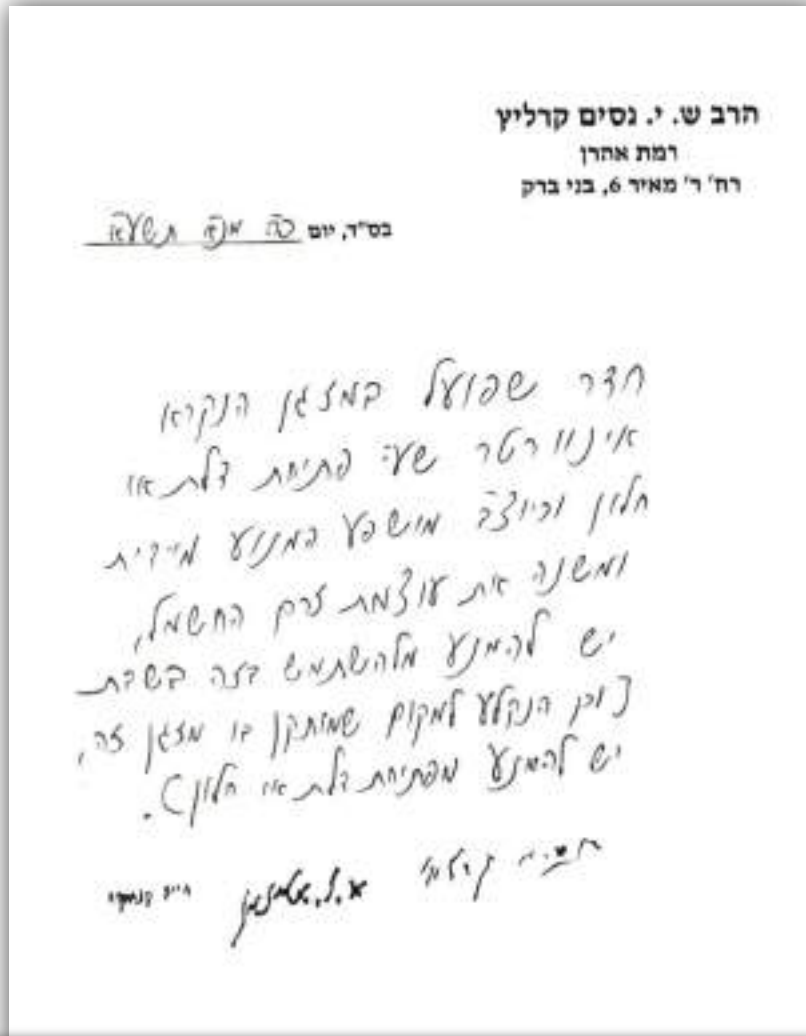 הרב ש. י. נסים קרליץ
רמת אהרן
רח' ר' מאיר 6, בני ברק
בס"ד, יום כה מנ"א תשע"א
חדר שפועל במזגן הנקרא
אינוורטר שע"י פתיחת דלת או
חלון וכיוצ"ב מושפע המנוע מיידית
ומשנה את עוצמת זרם החשמל,
יש להמנע מלהשתמש בזה בשבת
[וכן הנקלע למקום שמותקן בו מזגן זה,
יש להמנע מפתיחת דלת או חלון].
קרליץ
חיים קניבסקי